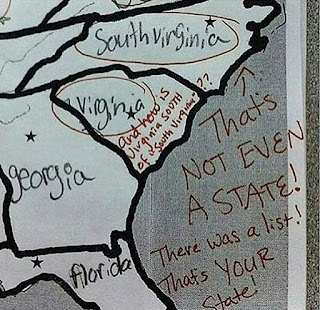 South virginia
Virginia
and how is
Virginia SOUTH
of "South Virginia"??
georgia
florida
That's
NOT EVEN
A STATE!
There was a list!
Thats YOUR
State!